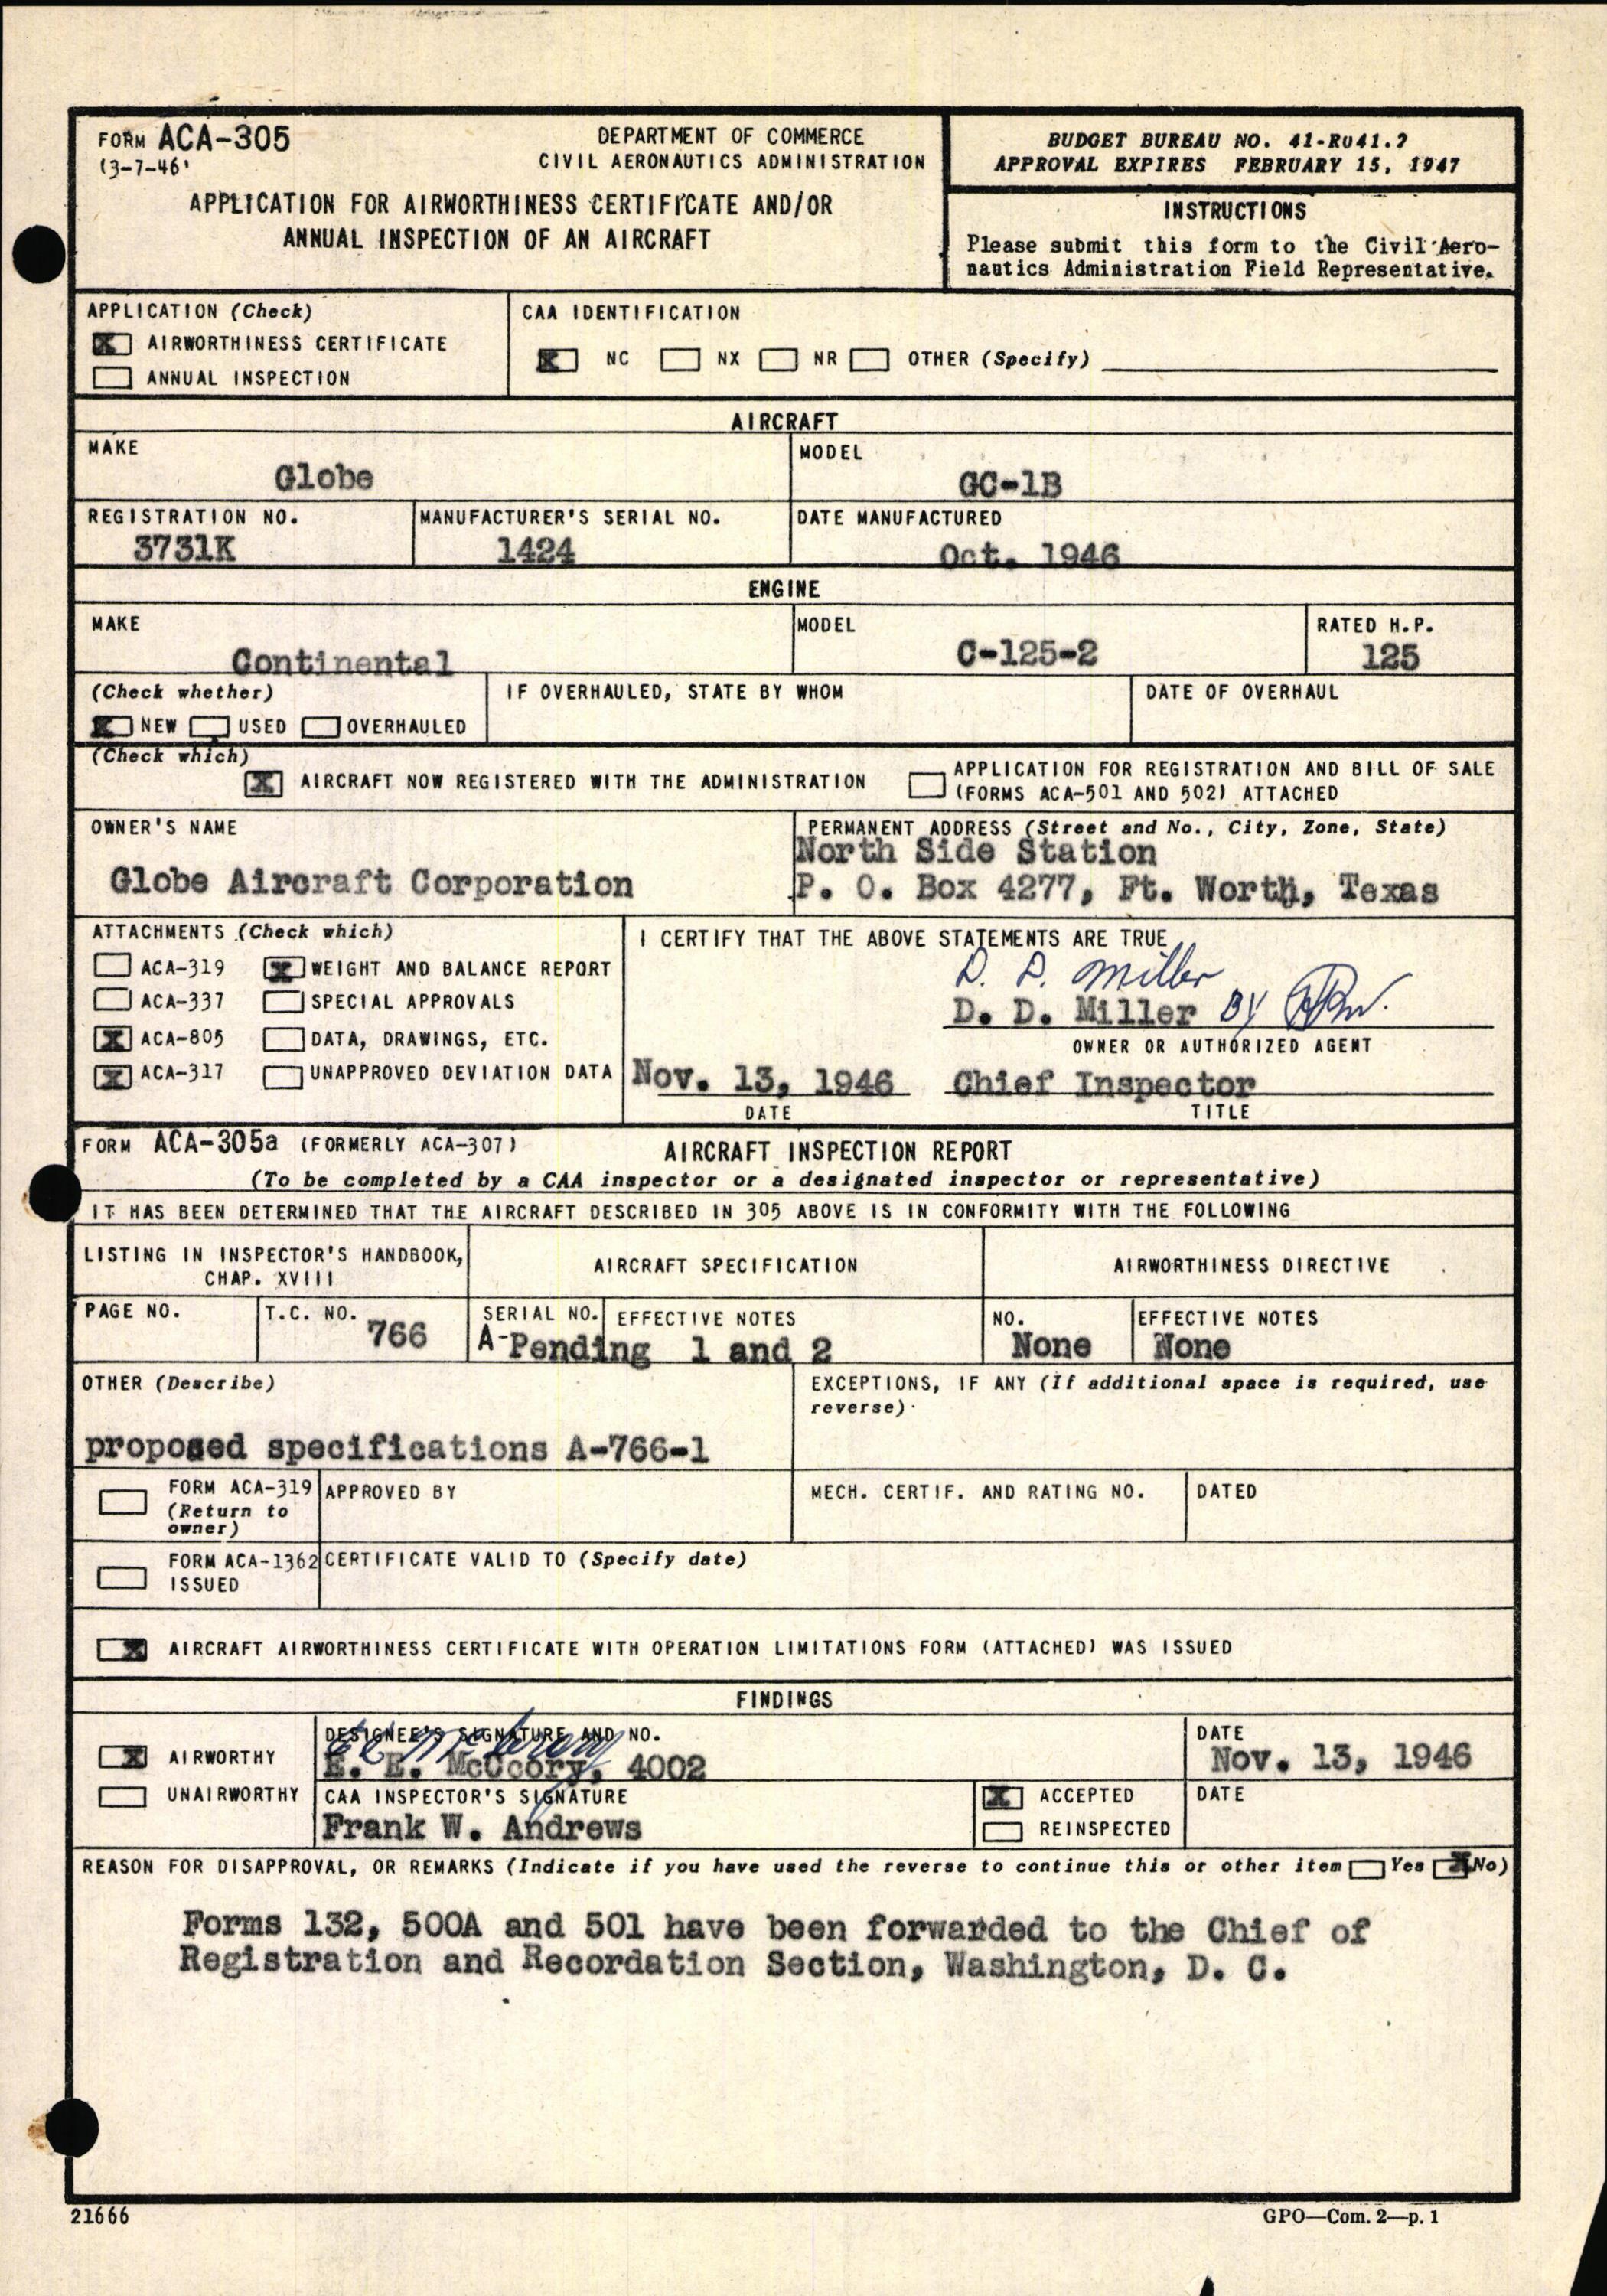 FORM ACA-305
(3-7-46)
DEPARTMENT OF COMMERCE
CIVIL AERONAUTICS ADMINISTRATION
APPLICATION FOR AIRWORTHINESS CERTIFICATE AND/OR
ANNUAL INSPECTION OF AN AIRCRAFT
BUDGET BUREAU NO. 41-R041.2
APPROVAL EXPIRES FEBRUARY 15, 1947
INSTRUCTIONS
Please submit this form to the Civil Aero-
nautics Administration Field Representative.
APPLICATION (Check)
X AIRWORTHINESS CERTIFICATE
ANNUAL INSPECTION
CAA IDENTIFICATION
X NC NX NR OTHER (Specify)
AIRCRAFT
MAKE
Globe
MODEL
GC-1B
REGISTRATION NO.
3731K
MANUFACTURER'S SERIAL NO.
1424
DATE MANUFACTURED
Oct. 1946
ENGINE
MAKE
Continental
MODEL
C-125-2
RATED H.P.
125
(Check whether)
X NEW USED OVERHAULED
IF OVERHAULED, STATE BY WHOM
DATE OF OVERHAUL
(Check which)
X AIRCRAFT NOW REGISTERED WITH THE ADMINISTRATION
APPLICATION FOR REGISTRATION AND BILL OF SALE
(FORMS ACA-501 AND 502) ATTACHED
OWNER'S NAME
Globe Aircraft Corporation
PERMANENT ADDRESS (Street and No., City, Zone, State)
North Side Station
P. O. Box 4277, Ft. Worth, Texas
ATTACHMENTS (Check which)
ACA-319 X WEIGHT AND BALANCE REPORT
ACA-337 SPECIAL APPROVALS
X ACA-805 DATA, DRAWINGS, ETC.
X ACA-317 UNAPPROVED DEVIATION DATA
I CERTIFY THAT THE ABOVE STATEMENTS ARE TRUE
D. D. Miller
D. D. Miller BY
OWNER OR AUTHORIZED AGENT
Nov. 13, 1946 Chief Inspector
DATE TITLE
FORM ACA-305a (FORMERLY ACA-307) AIRCRAFT INSPECTION REPORT
(To be completed by a CAA inspector or a designated inspector or representative)
IT HAS BEEN DETERMINED THAT THE AIRCRAFT DESCRIBED IN 305 ABOVE IS IN CONFORMITY WITH THE FOLLOWING
LISTING IN INSPECTOR'S HANDBOOK,
CHAP. XVIII
AIRCRAFT SPECIFICATION
AIRWORTHINESS DIRECTIVE
PAGE NO.
T.C. NO.
766
SERIAL NO. EFFECTIVE NOTES
A-Pending 1 and 2
NO.
None
EFFECTIVE NOTES
None
OTHER (Describe)
proposed specifications A-766-1
EXCEPTIONS, IF ANY (If additional space is required, use
reverse)
FORM ACA-319
(Return to
owner)
APPROVED BY
MECH. CERTIF. AND RATING NO.
DATED
FORM ACA-1362
ISSUED
CERTIFICATE VALID TO (Specify date)
X AIRCRAFT AIRWORTHINESS CERTIFICATE WITH OPERATION LIMITATIONS FORM (ATTACHED) WAS ISSUED
FINDINGS
X AIRWORTHY
UNAIRWORTHY
DESIGNEE'S SIGNATURE AND NO.
E. E. McCcory, 4002
DATE
Nov. 13, 1946
CAA INSPECTOR'S SIGNATURE
Frank W. Andrews
X ACCEPTED
REINSPECTED
DATE
REASON FOR DISAPPROVAL, OR REMARKS (Indicate if you have used the reverse to continue this or other item Yes X No)
Forms 132, 500A and 501 have been forwarded to the Chief of
Registration and Recordation Section, Washington, D. C.
21666
GPO—Com. 2—p. 1